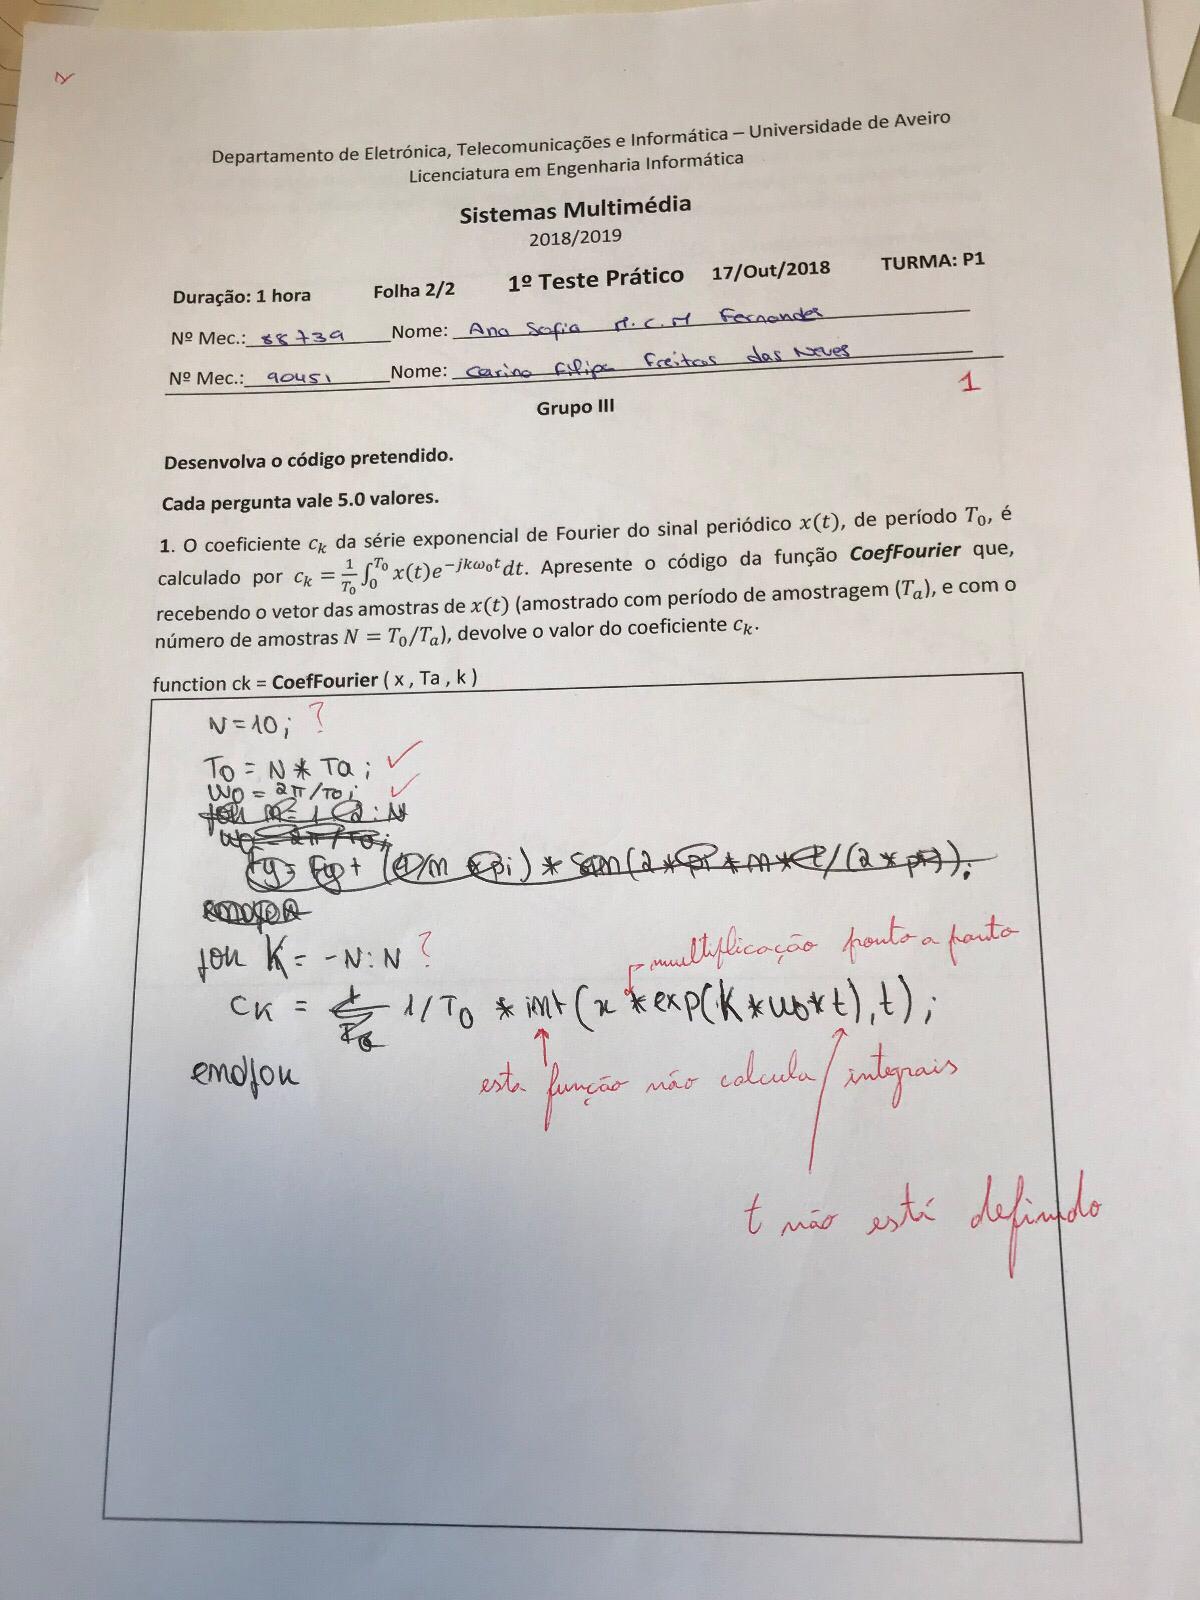 Departamento de Eletrónica, Telecomunicações e Informática – Universidade de Aveiro
Licenciatura em Engenharia Informática
Sistemas Multimédia
2018/2019
Duração: 1 hora Folha 2/2 1º Teste Prático 17/Out/2018 TURMA: P1
Nº Mec.: 88739 Nome: Ana Sofia M.C.M Fernandes
Nº Mec.: 90451 Nome: Carina Filipa Freitas das Neves
1
Grupo III
Desenvolva o código pretendido.
Cada pergunta vale 5.0 valores.
1. O coeficiente c_k da série exponencial de Fourier do sinal periódico x(t), de período T_0, é
calculado por c_k = 1/T_0 ∫_0^{T_0} x(t)e^{-jkω_0t}dt. Apresente o código da função CoefFourier que,
recebendo o vetor das amostras de x(t) (amostrado com período de amostragem (T_a), e com o
número de amostras N = T_0/T_a), devolve o valor do coeficiente c_k.
function ck = CoefFourier ( x , Ta , k )
N = 10; ?
T0 = N * Ta ;
W0 = 2π/T0;
for K = -N:N ?
multiplicação ponto a ponto
CK = 1/T0 * int(x *exp(K*w0*t),t);
endfor
esta função não calcula integrais
t não está definido